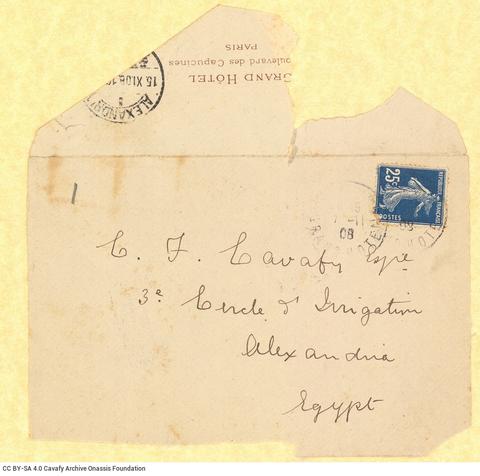 GRAND HÔTEL
oulevard des Capucines
PARIS
ALEXANDRI
15.XI.08.10
25c
REPUBLIQUE FRANÇAISE
POSTES
08
C. F. Cavafy Esqre
3e Cercle d'Irrigation
Alexandria
Egypt
CC BY-SA 4.0 Cavafy Archive Onassis Foundation